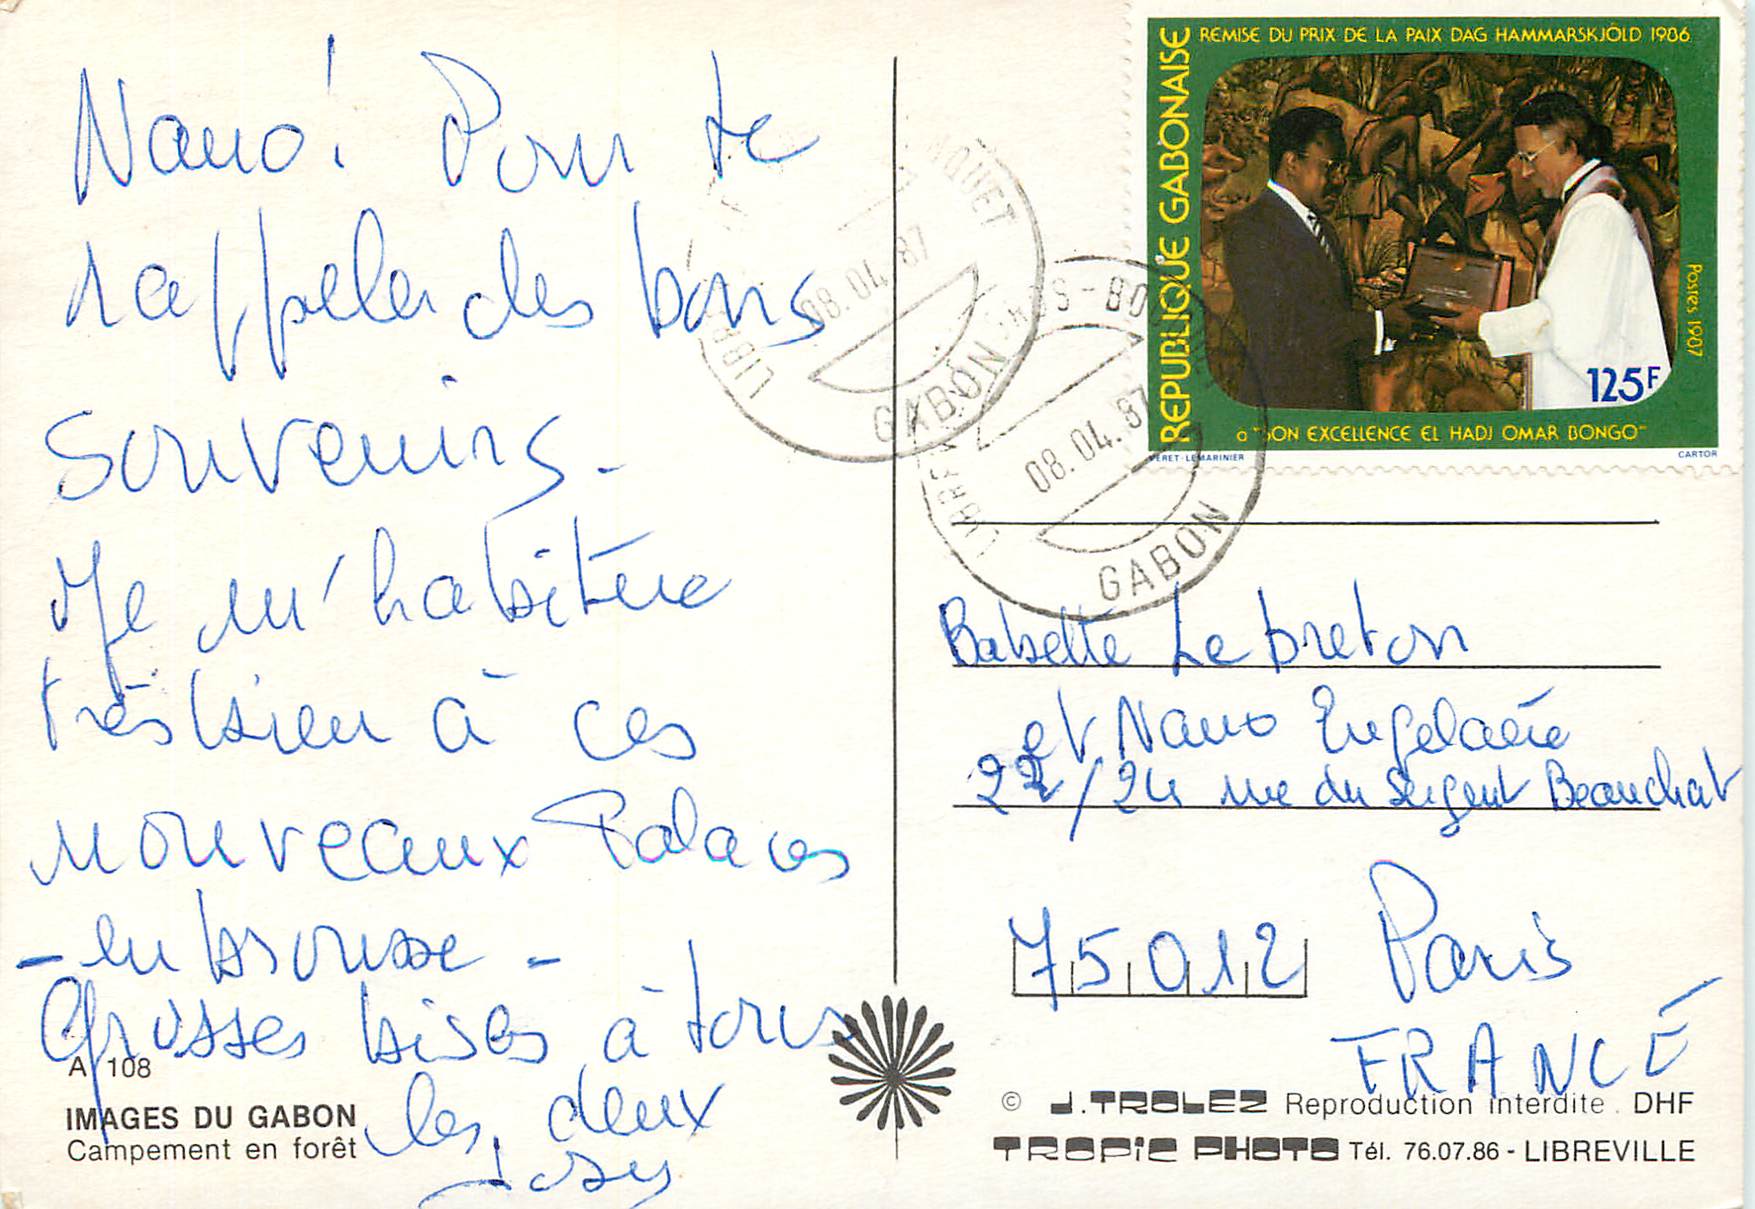 Nano! Pour te
rappeler des bons
souvenirs.
Je m'habitue
très bien à ces
nouveaux Palaces
- en brousse -
Grosses bises à tous
les deux
REMISE DU PRIX DE LA PAIX DAG HAMMARSKJÖLD 1986
REPUBLIQUE GABONAISE
Postes 1987
125F
à "SON EXCELLENCE EL HADJ OMAR BONGO"
VERET-LEMARINIER
CARTOR
08.04.87
GABON
08.04.87
GABON
Babette Le breton
et Nano
22/24 rue du Sergent Beauchat
75012 Paris
FRANCE
A 108
IMAGES DU GABON
Campement en forêt
© J.TROLEZ Reproduction interdite. DHF
TROPIC PHOTO Tél. 76.07.86 - LIBREVILLE